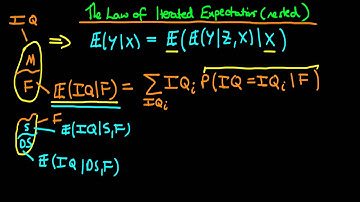 The Law of Iterated Expectations (nested)
IQ
⇒ E(Y|X) = E(E(Y|Z,X)|X)
M
F
E(IQ|F) = ∑ IQᵢ P(IQ=IQᵢ|F)
IQᵢ
F
S
E(IQ|S,F)
DS
E(IQ|DS,F)